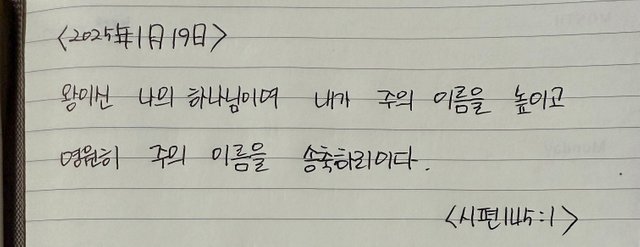 <2025年1月19日>
왕이신 나의 하나님이여 내가 주의 이름을 높이고
영원히 주의 이름을 송축하리이다.
<시편145:1>